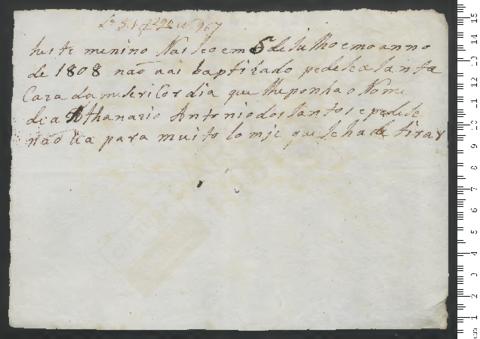 heste menino Nasseo em 5 de Julho e mo anno
de 1808 não vai baptizado pedese a Santa
Caza da misericordia que lhe ponha o Nome
de a Athanazio Antonio dos Santos e pedese
não va para muito lomje que se ha de tirar